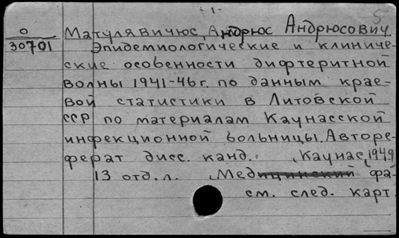 - 1 -
5
О
30701
Матулявичюс, Андрюс Андрюсович.
Эпидемиологические и клиниче-
ские особенности дифтеритной
волны 1941-46 г. по данным крае-
вой статистики в Литовской
ССР по материалам Каунасской
инфекционной больницы. Авторе-
ферат дисс. канд. Каунас, 1949
13 отд. л. Медицинский фа-
см. след. карт.